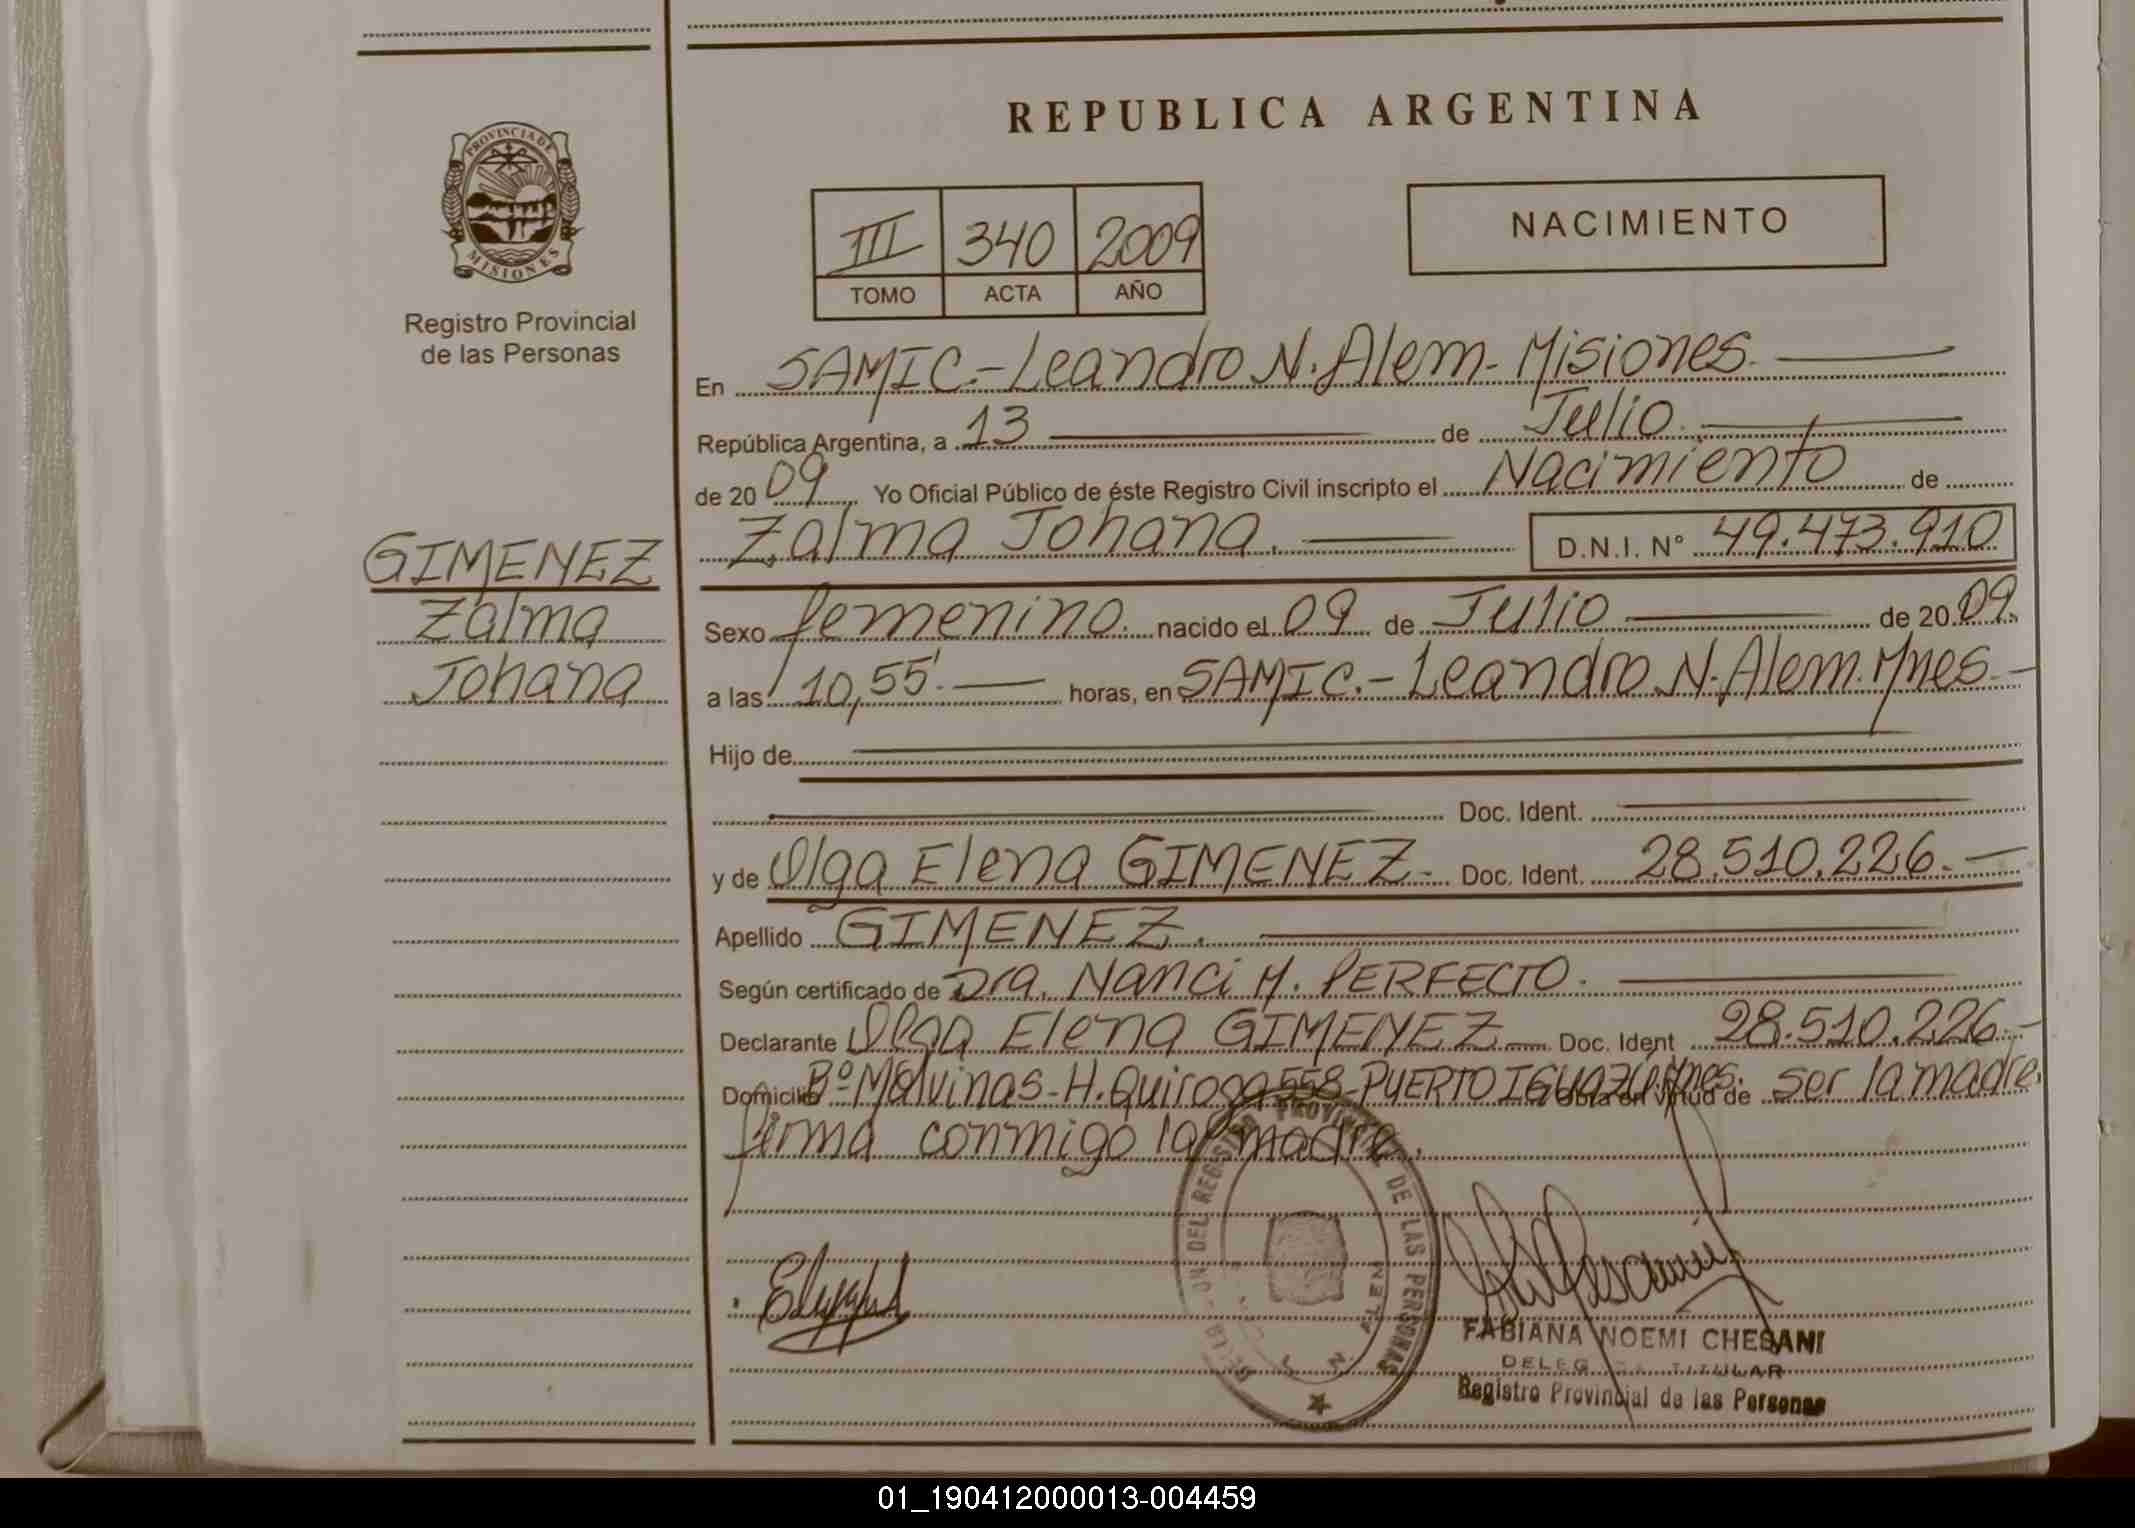 REPUBLICA ARGENTINA
PROVINCIA DE
MISIONES
Registro Provincial
de las Personas
III 340 2009
TOMO ACTA AÑO
NACIMIENTO
En SAMIC.-Leandro N. Alem- Misiones.
República Argentina, a 13 de Julio.
de 20 09 Yo Oficial Público de éste Registro Civil inscripto el Nacimiento de
Zalma Johana. D.N.I. Nº 49.473.910
GIMENEZ
Zalma
Johana
Sexo femenino. nacido el 09 de Julio de 20 09.
a las 10,55'. horas, en SAMIC.- Leandro N. Alem. Mnes.
Hijo de
Doc. Ident.
y de Olga Elena GIMENEZ.- Doc. Ident. 28.510.226.-
Apellido GIMENEZ.
Según certificado de Dra. Nanci M. PERFECTO.
Declarante Olga Elena GIMENEZ Doc. Ident 28.510.226.-
Domicilio Bº Malvinas-H. Quiroga 558-PUERTO IGUAZÚ. Mnes. Obra en virtud de ser la madre,
firma conmigo la madre.
DEL REGISTRO PROVINCIAL DE LAS PERSONAS
L. N. ALEM
FABIANA NOEMI CHESANI
TITULAR
Registro Provincial de las Personas
01_190412000013-004459